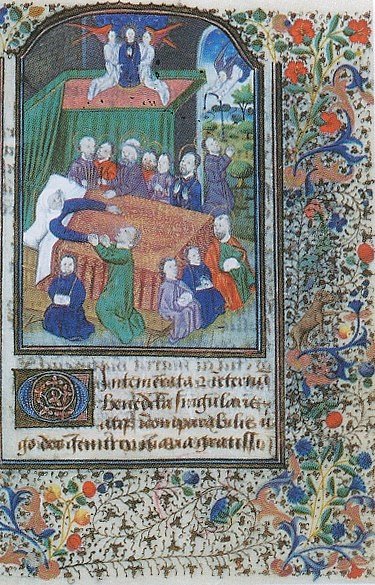 O intemerata
benedicta singularis
atq; incomparabilis ui
go dei genitrix maria gratissi